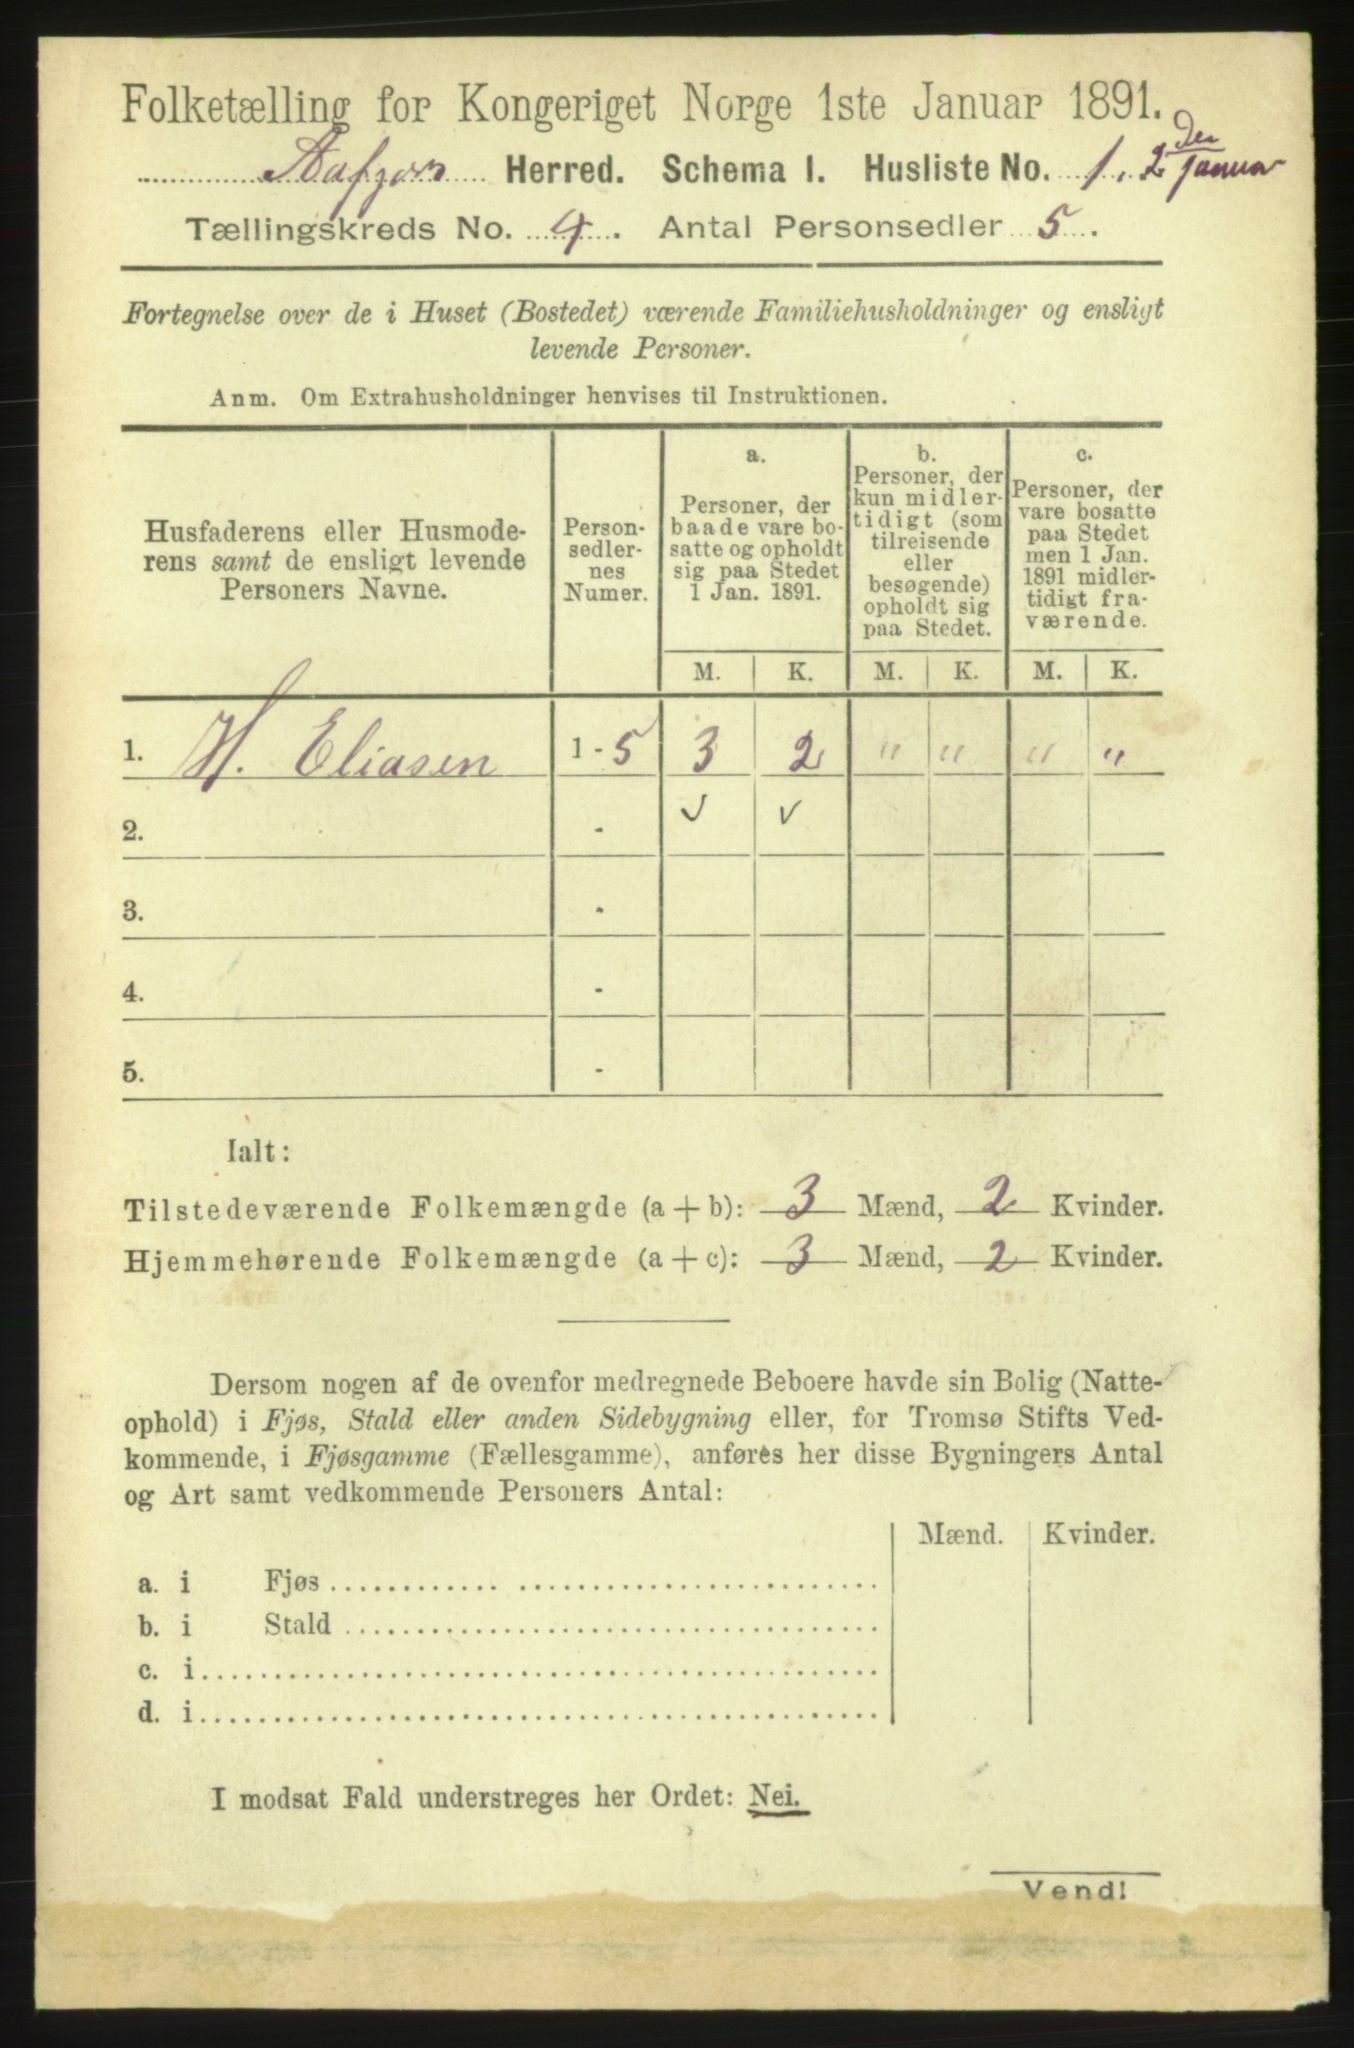 Folketælling for Kongeriget Norge 1ste Januar 1891.
Aafjors Herred. Schema I. Husliste No. 1. 2 den Januar
Tællingskreds No. 4. Antal Personsedler 5.
Fortegnelse over de i Huset (Bostedet) værende Familiehusholdninger og ensligt
levende Personer.
Anm. Om Extrahusholdninger henvises til Instruktionen.
Husfaderens eller Husmode-
rens samt de ensligt levende
Personers Navne.
Person-
sedler-
nes
Numer.
a.
Personer, der
baade vare bo-
satte og opholdt
sig paa Stedet
1 Jan. 1891.
b.
Personer, der
kun midler-
tidigt (som
tilreisende
eller
besøgende)
opholdt sig
paa Stedet.
c.
Personer, der
vare bosatte
paa Stedet
men 1 Jan.
1891 midler-
tidigt fra-
værende.
M. K. M. K. M. K.
1. H. Eliasen 1 - 5 3 2 " " " " 
2. - ✓ ✓
3. -
4. -
5. -
Ialt:
Tilstedeværende Folkemængde (a + b): 3 Mænd, 2 Kvinder.
Hjemmehørende Folkemængde (a + c): 3 Mænd, 2 Kvinder.
Dersom nogen af de ovenfor medregnede Beboere havde sin Bolig (Natte-
ophold) i Fjøs, Stald eller anden Sidebygning eller, for Tromsø Stifts Ved-
kommende, i Fjøsgamme (Fællesgamme), anføres her disse Bygningers Antal
og Art samt vedkommende Personers Antal:
Mænd. Kvinder.
a. i Fjøs
b. i Stald
c. i
d. i
I modsat Fald understreges her Ordet: Nei.
Vend!